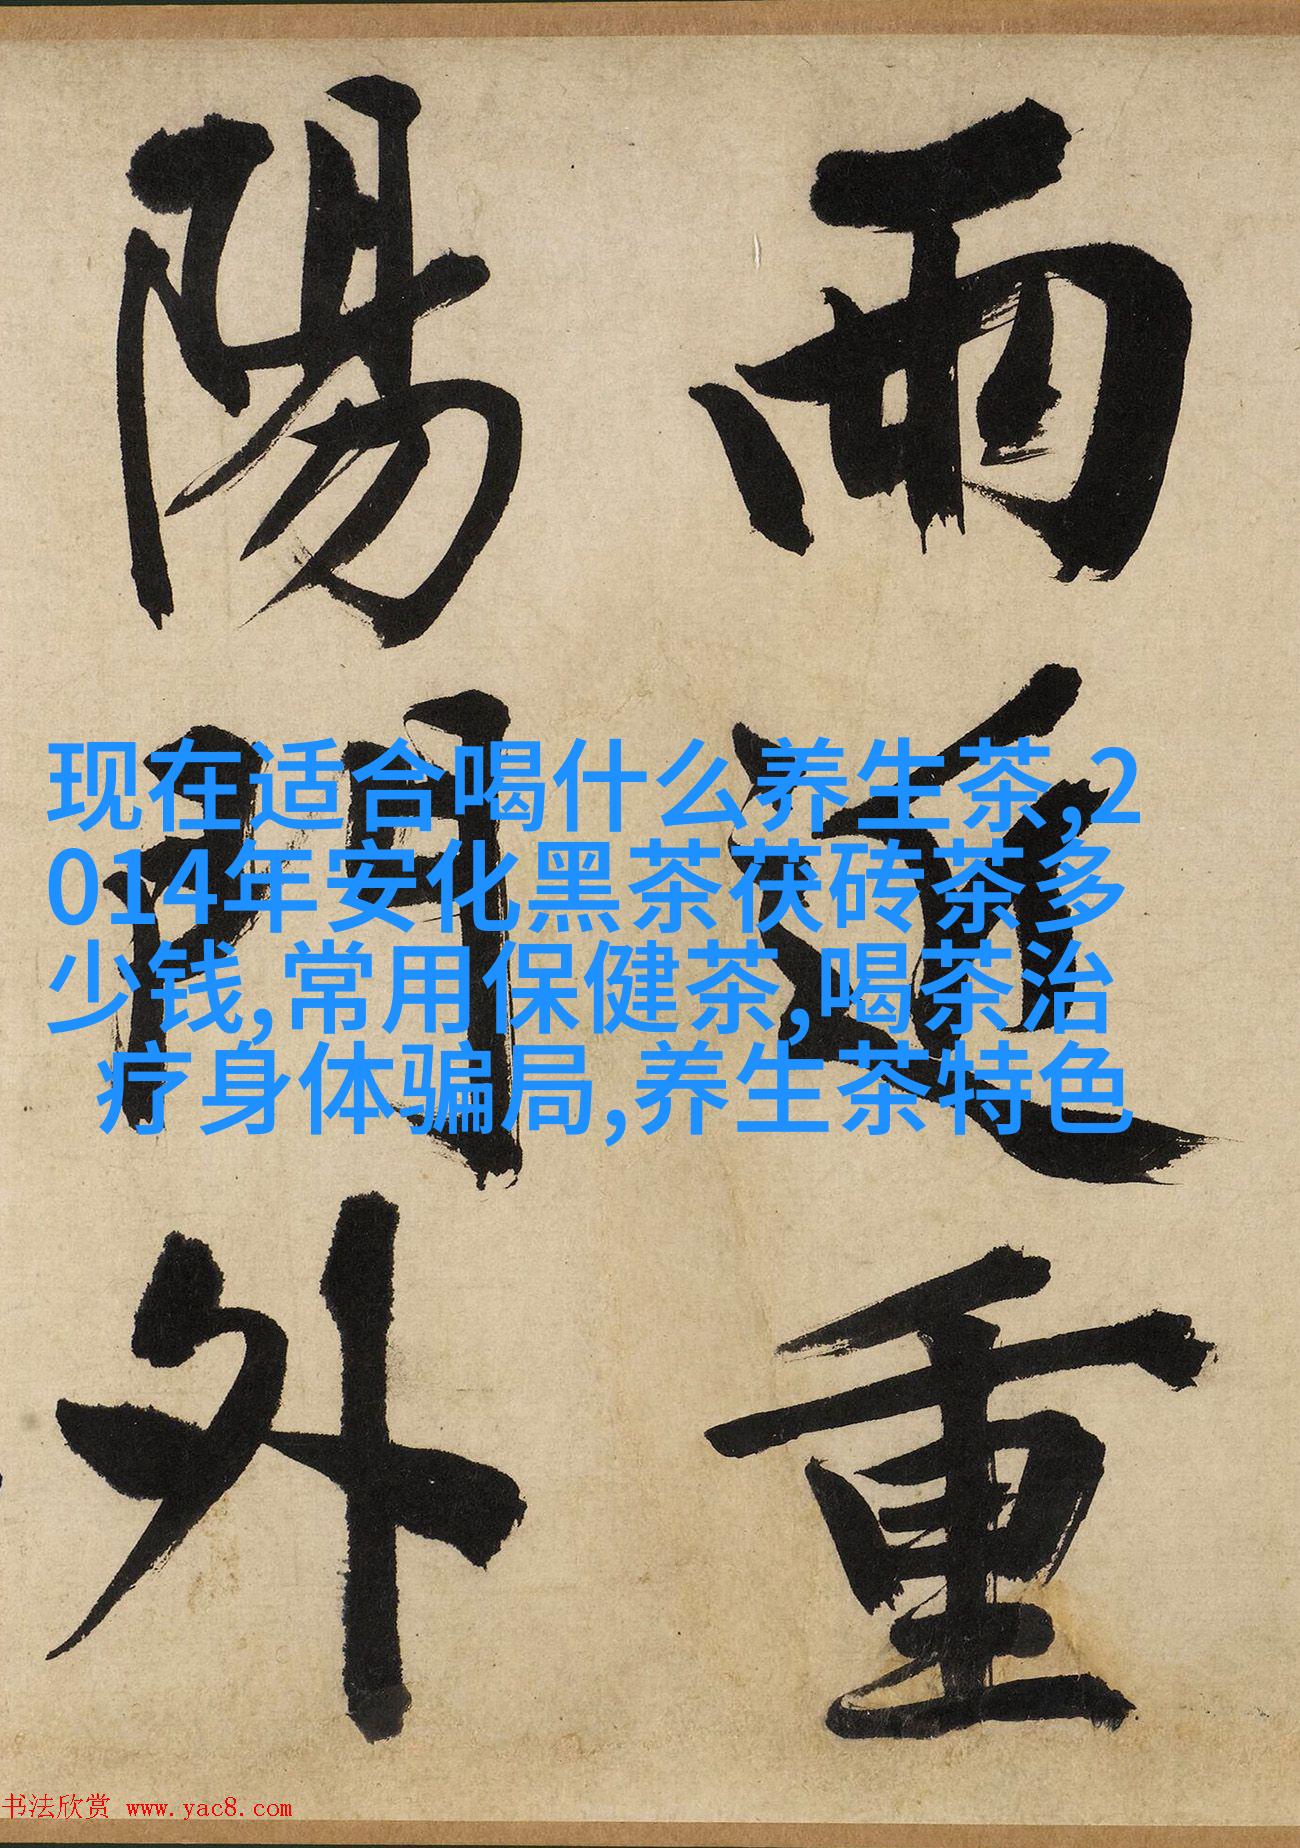 雨過重
陽門外
现在适合喝什么养生茶,2
014年安化黑茶茯砖茶多
少钱,常用保健茶,喝茶治
疗身体骗局,养生茶特色
书法欣赏 www.yac8.com